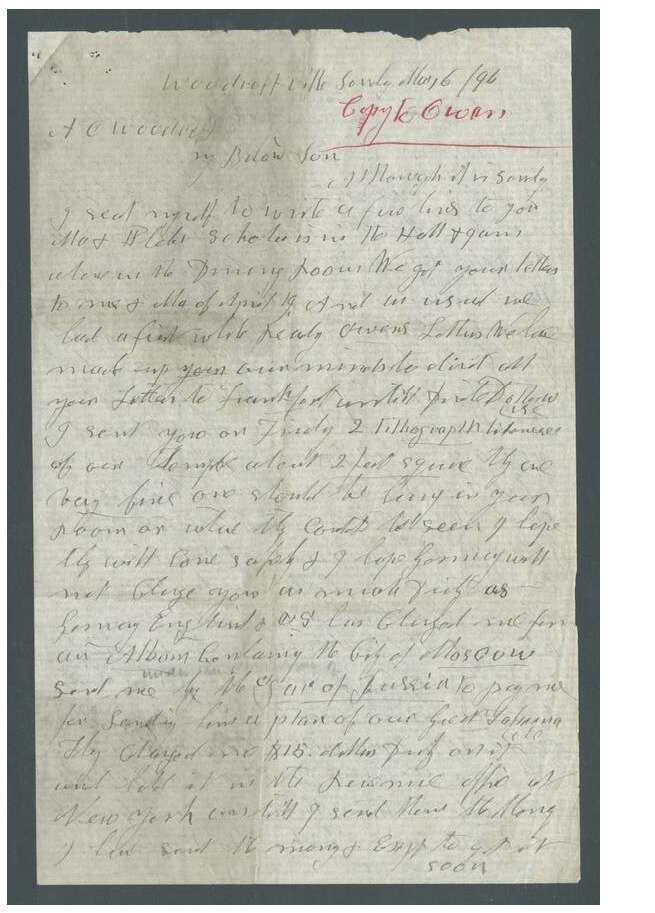 Woodruff ville Sondy May 6 /96
Copy to Owen
A O Woodruff
my Belov Son
Although it is Sondy
I seat myself to write a few lines to you
Ma & Scholars is in the Hall &
alone in the Dining Room We got your letter
to me & Ma of April 19 And as usual we
had a first while Owens Letters We have
made up your our minds to direct all
your Letters to Frankfort untill
I sent you on Fridy 2 lithographth likeneses
of our Temple about 2 feet square They are
very fine one should be hung in your
Room or whare they could be seen I hope
they will Come safely & I hope Germany will
not Charge you as much Duty as
Germay England & US has Charged me for
an Albom Containing the City of Moscow
sent me by the Czar of Russia to pay me
for Sending him a plan of our Great Tabernacle
They Charged me $15. dollars Duty on it
and held it in the Revenue office at
New York untill I send them the Mony
I have sent the mony & Expt to get it
soon